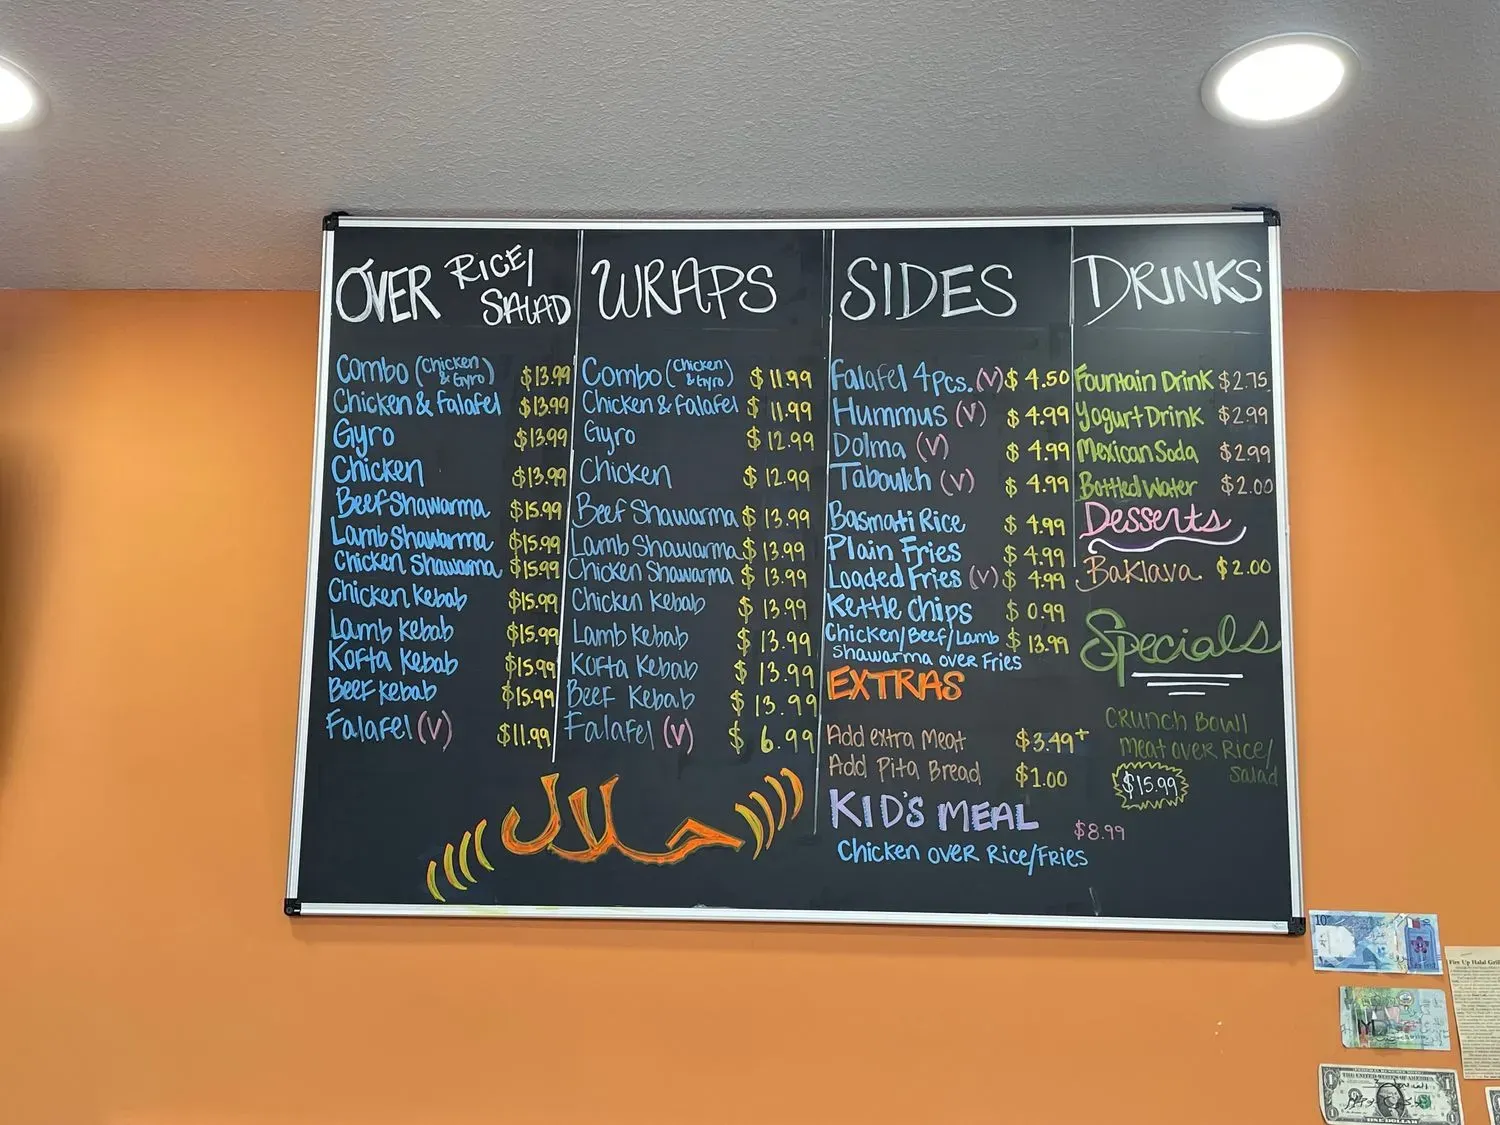 OVER RICE/
SALAD
Combo (Chicken & Gyro) $13.99
Chicken & Falafel $13.99
Gyro $13.99
Chicken $13.99
Beef Shawarma $15.99
Lamb Shawarma $15.99
Chicken Shawarma $15.99
Chicken Kebab $15.99
Lamb Kebab $15.99
Kofta Kebab $15.99
Beef Kebab $15.99
Falafel (V) $11.99
WRAPS
Combo (Chicken & Gyro) $11.99
Chicken & Falafel $11.99
Gyro $12.99
Chicken $12.99
Beef Shawarma $13.99
Lamb Shawarma $13.99
Chicken Shawarma $13.99
Chicken Kebab $13.99
Lamb Kebab $13.99
Kofta Kebab $13.99
Beef Kebab $13.99
Falafel (V) $6.99
حلال
SIDES
Falafel 4pcs. (V) $4.50
Hummus (V) $4.99
Dolma (V) $4.99
Taboulch (V) $4.99
Basmati Rice $4.99
Plain Fries $4.99
Loaded Fries (V) $4.99
Kettle Chips $0.99
Chicken/Beef/Lamb $13.99
Shawarma over Fries
EXTRAS
Add extra Meat $3.49+
Add Pita Bread $1.00
KID'S MEAL $8.99
Chicken over Rice/Fries
DRINKS
Fountain Drink $2.75
Yogurt Drink $2.99
Mexican Soda $2.99
Bottled Water $2.00
Desserts
Baklava $2.00
Specials
Crunch Bowl
Meat over Rice/
Salad
$15.99
10
Fire Up Halal Gril
THE UNITED STATES OF AMERICA
ONE DOLLAR